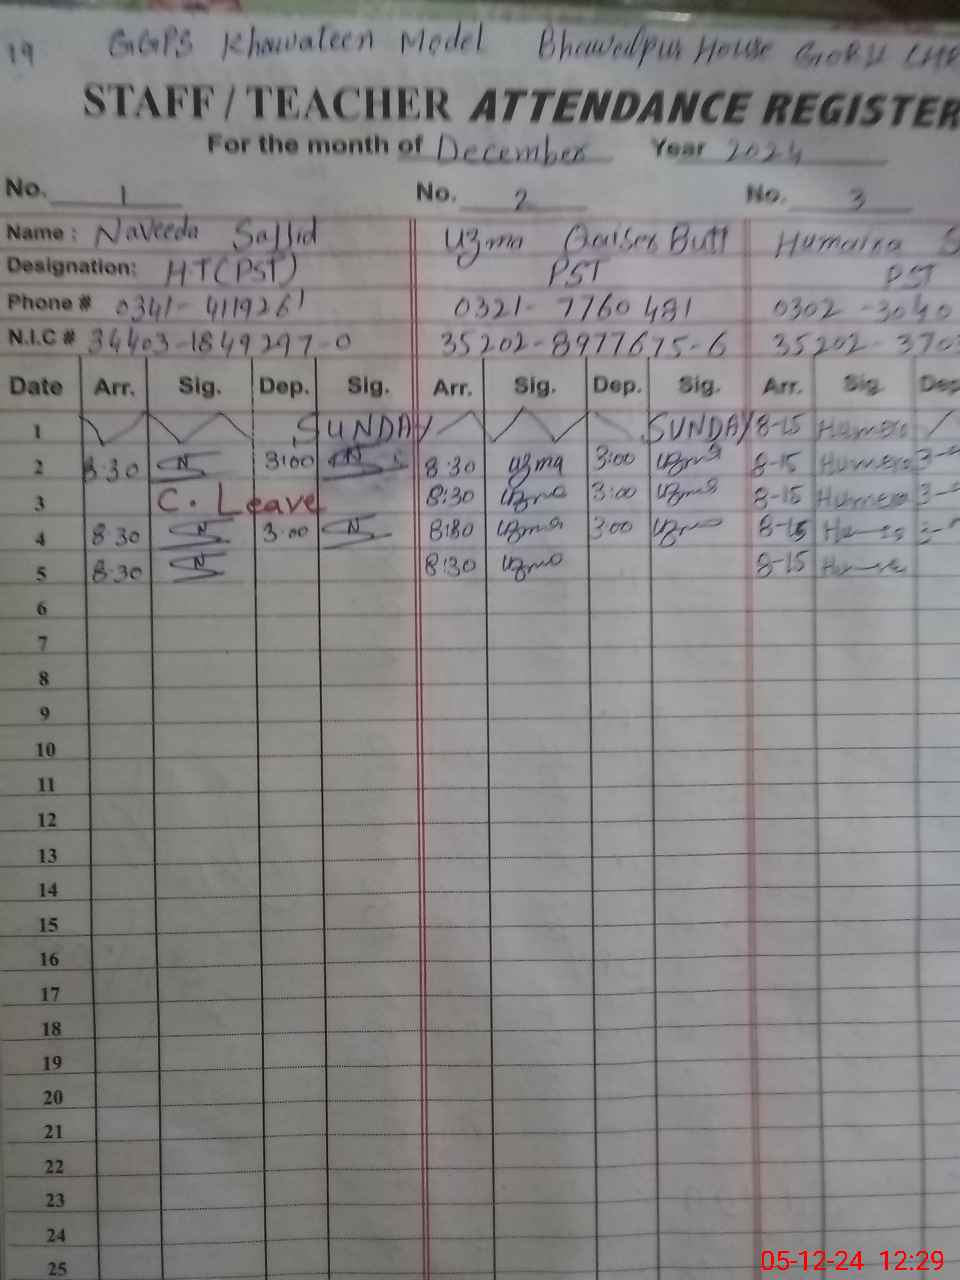 19 GGPS Khawateen Model Bhawalpur House GORII LHR
STAFF / TEACHER ATTENDANCE REGISTER
For the month of December Year 2024
No. 1 No. 2 No. 3
Name : Naveeda Sajjid Uzma Qaiser Butt Humaira S
Designation: HT(PST) PST PST
Phone # 0341-4119261 0321-7760481 0302-3040
N.I.C # 34403-1849297-0 35202-8977675-6 35202-370
Date Arr. Sig. Dep. Sig. Arr. Sig. Dep. Sig. Arr. Sig. Dep
1 SUNDAY SUNDAY 8-15 Humera
2 8:30 N 3:00 N 8:30 uzma 3:00 uzma 8-15 Humera 3-
3 C. Leave 8:30 uzma 3:00 uzma 8-15 Humera 3-
4 8:30 N 3:00 N 8:30 uzma 3:00 uzma 8-15 3-
5 8:30 N 8:30 uzma 8-15
6
7
8
9
10
11
12
13
14
15
16
17
18
19
20
21
22
23
24
25
05-12-24 12:29